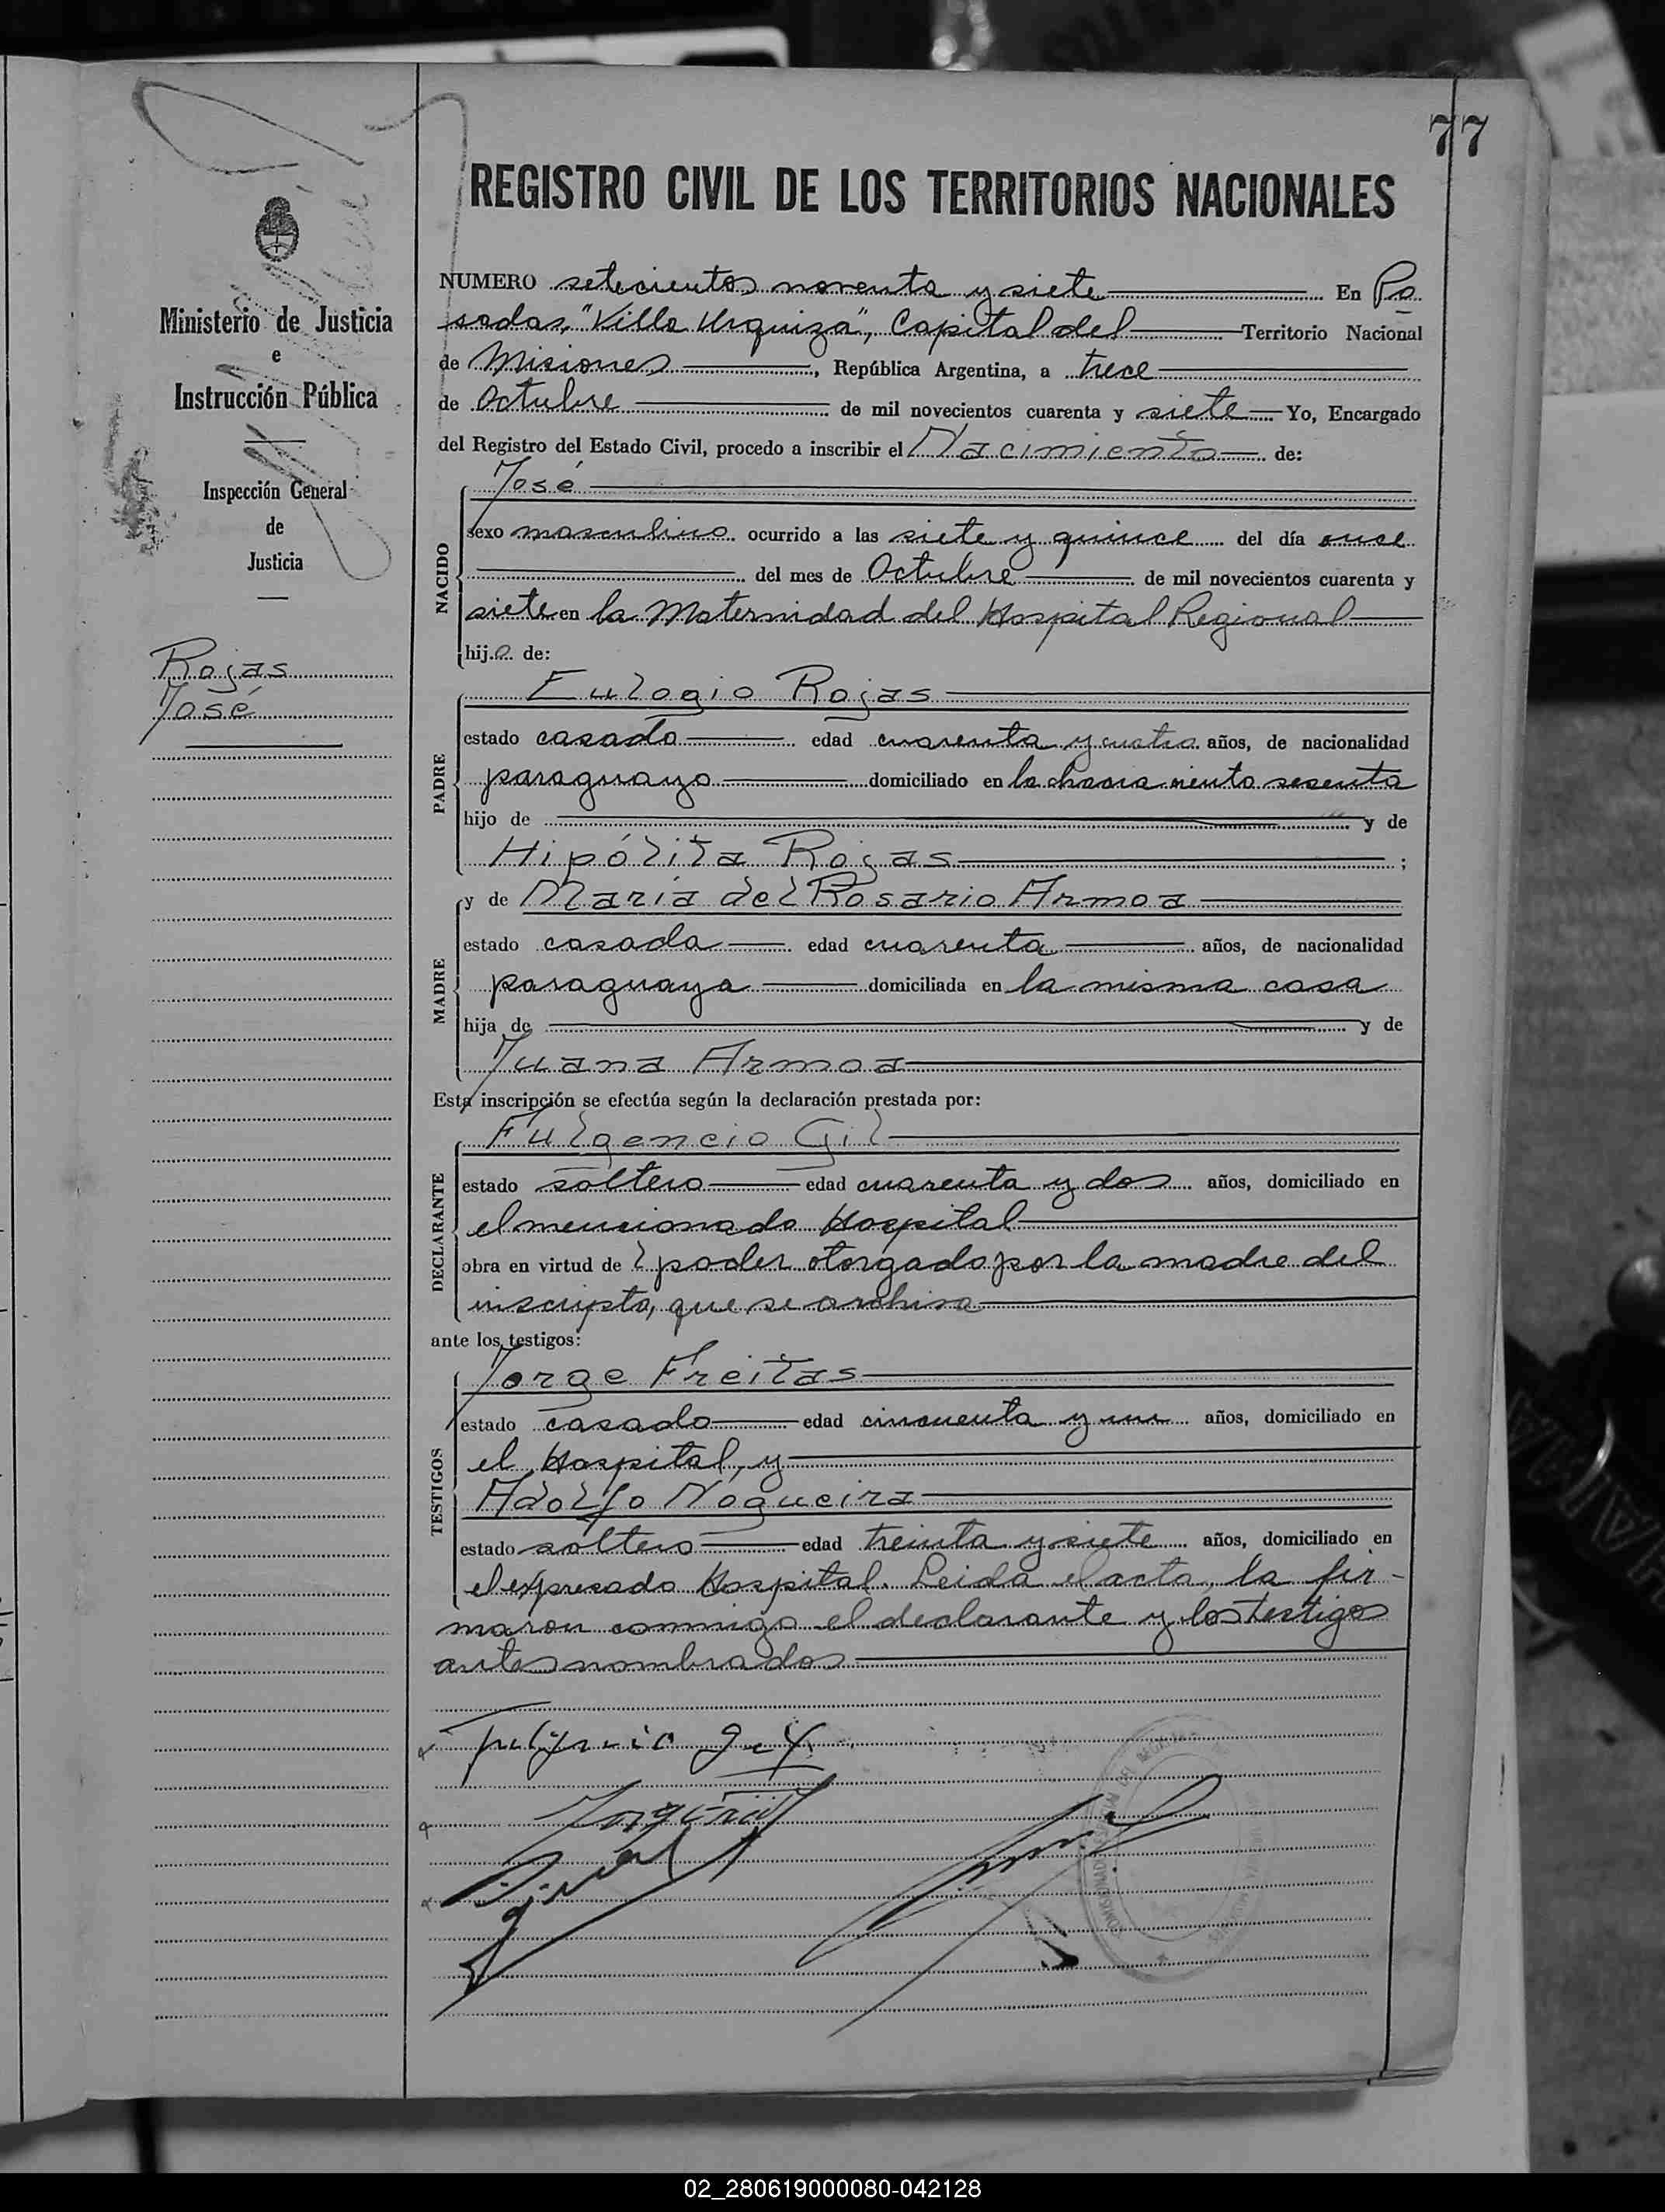 77
REGISTRO CIVIL DE LOS TERRITORIOS NACIONALES
Ministerio de Justicia
e
Instrucción Pública
Inspección General
de
Justicia
Rojas
José
NUMERO setecientos noventa y siete En Po
sadas, "Villa Urquiza", Capital del Territorio Nacional
de Misiones, República Argentina, a trece
de Octubre de mil novecientos cuarenta y siete Yo, Encargado
del Registro del Estado Civil, procedo a inscribir el Nacimiento de:
José
NACIDO
sexo masculino ocurrido a las siete y quince del día once
del mes de Octubre de mil novecientos cuarenta y
siete en la Maternidad del Hospital Regional
hijo de:
Eulogio Rojas
PADRE
estado casado edad cuarenta y cuatro años, de nacionalidad
paraguayo domiciliado en la chacra ciento sesenta
hijo de y de
Hipólita Rojas;
y de María del Rosario Armoa
MADRE
estado casada edad cuarenta años, de nacionalidad
paraguaya domiciliada en la misma casa
hija de y de
Juana Armoa
Esta inscripción se efectúa según la declaración prestada por:
Fulgencio Gil
DECLARANTE
estado soltero edad cuarenta y dos años, domiciliado en
el mencionado Hospital
obra en virtud de l poder otorgado por la madre del
inscripto, que se archiva
ante los testigos:
Jorge Freitas
TESTIGOS
estado casado edad cincuenta y un años, domiciliado en
el Hospital, y
Adolfo Nogueira
estado soltero edad treinta y siete años, domiciliado en
el expresado Hospital. Leida el acta, la fir-
maron conmigo el declarante y los testigos
antes nombrados
02_280619000080-042128